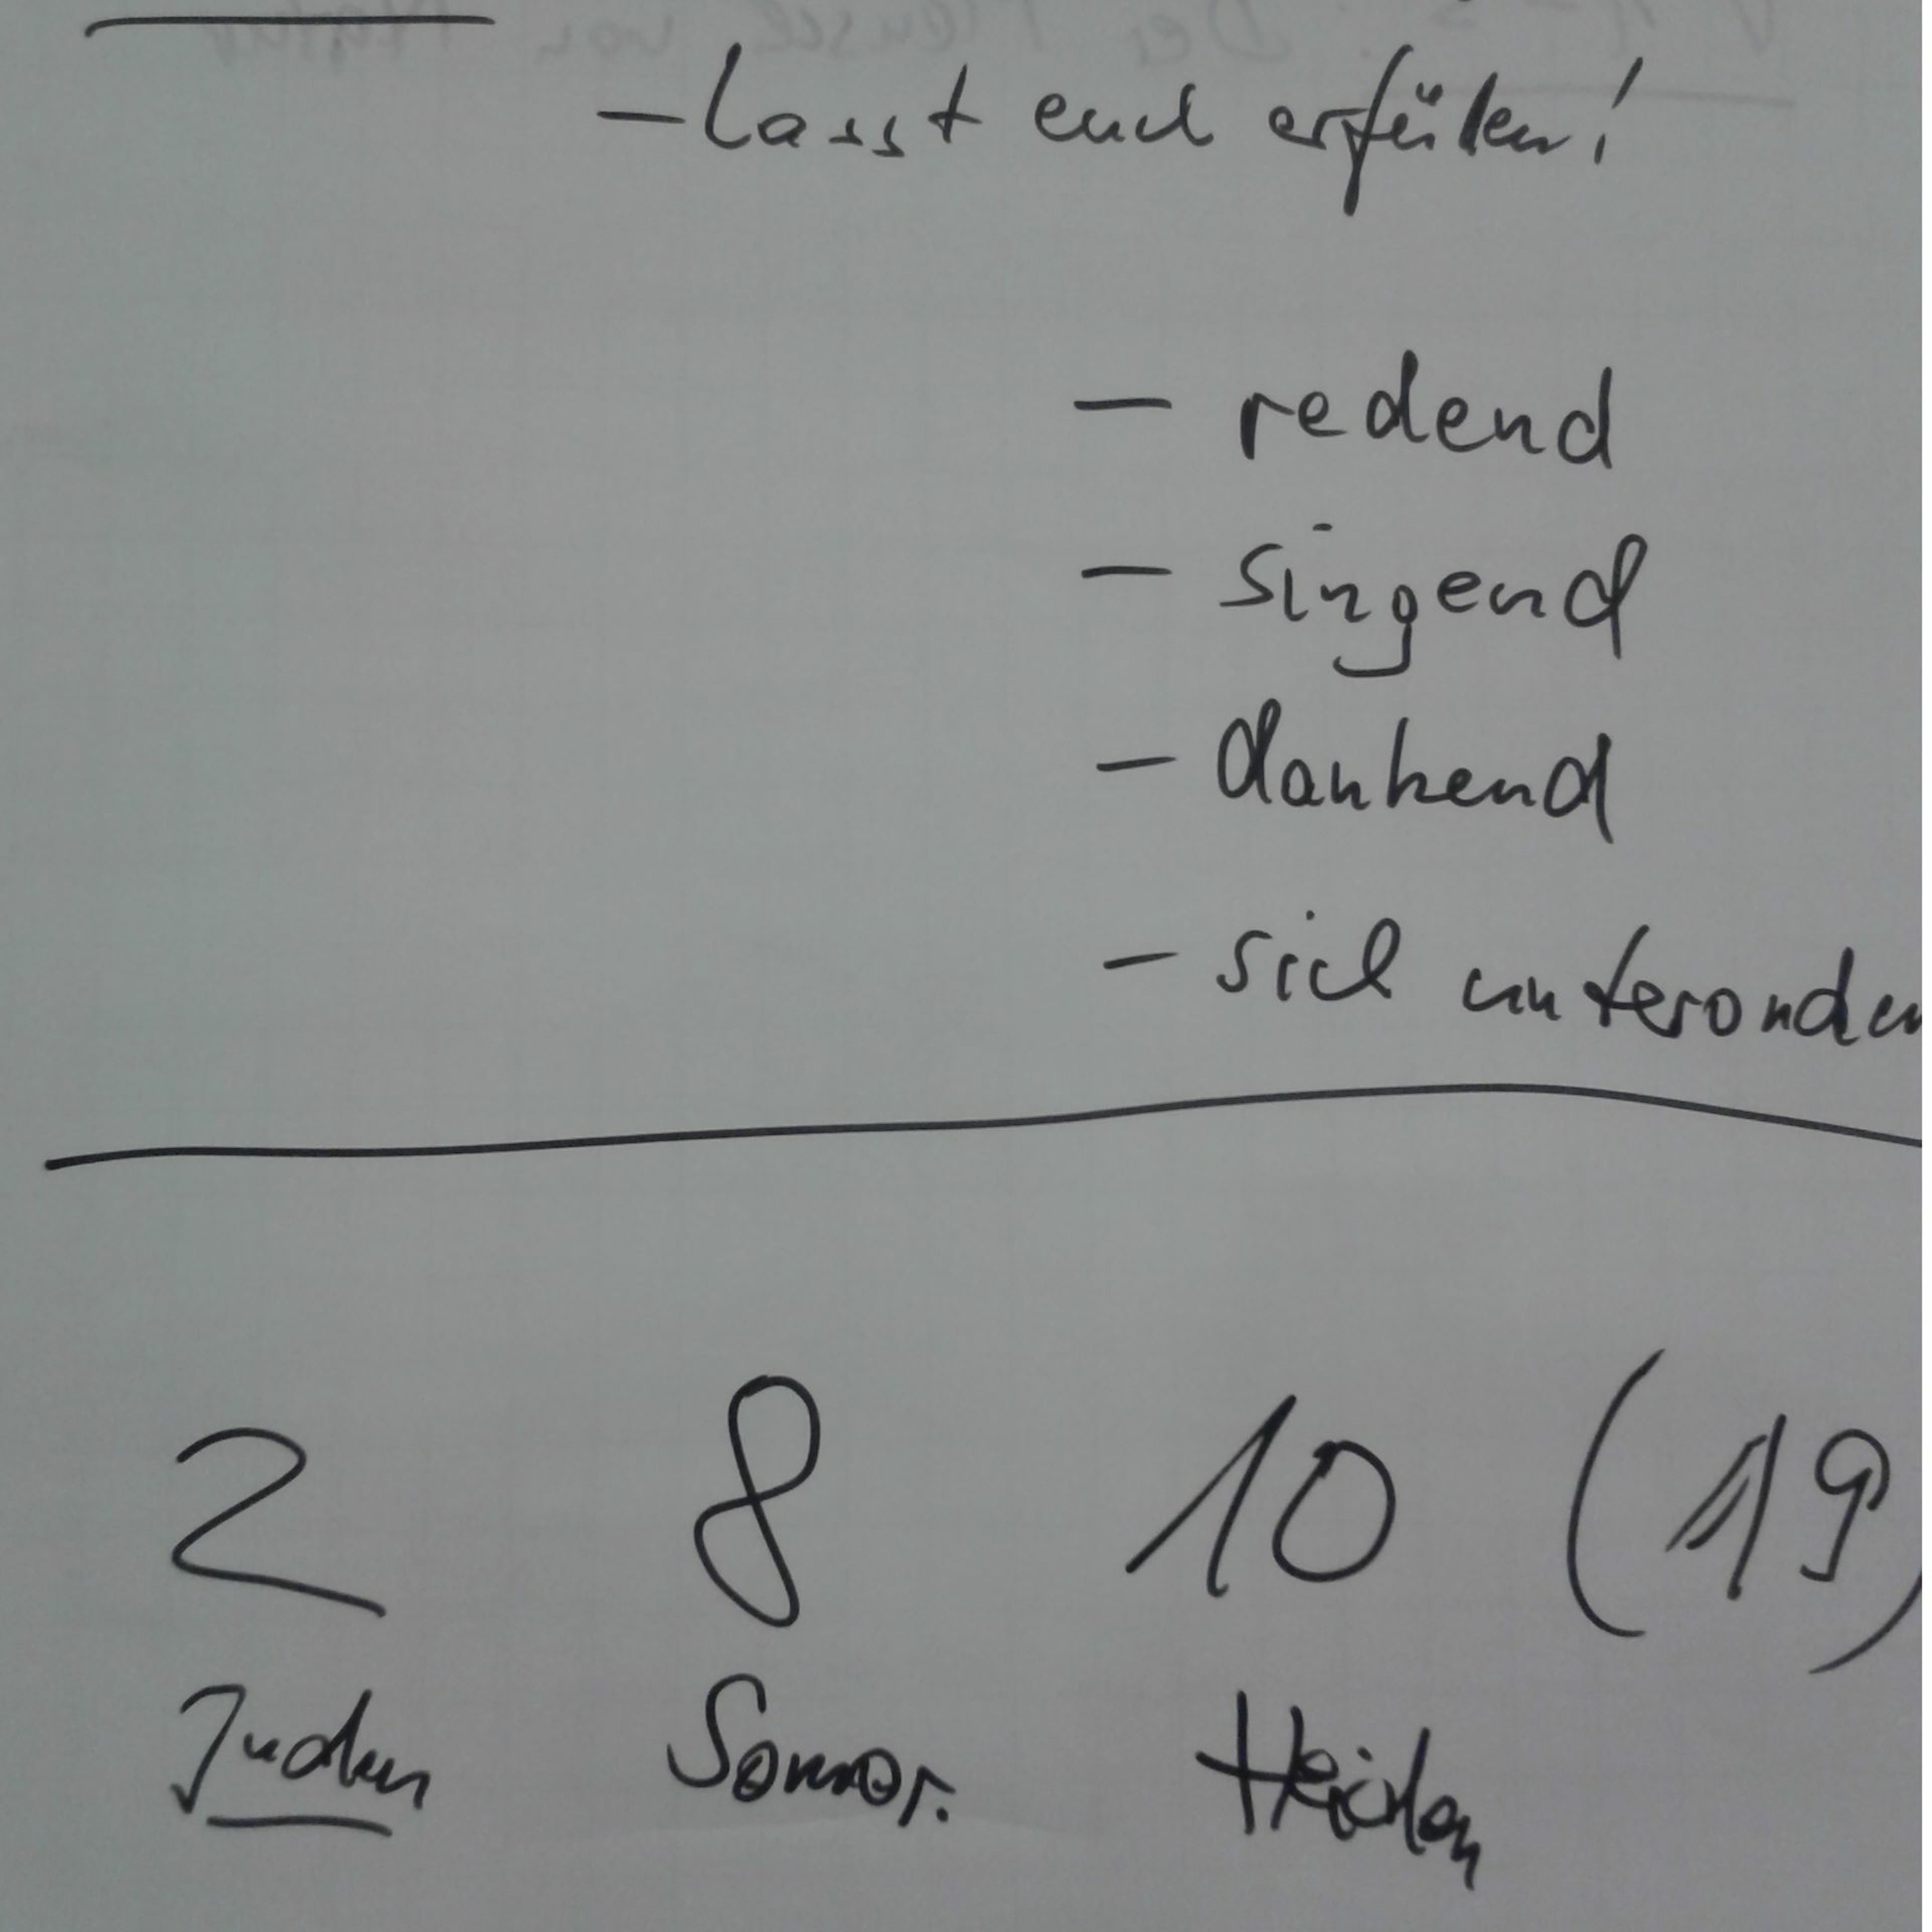 - lasst euch erfüllen!
- redend
- singend
- dankend
- sich unterordnen
2 8 10 (19)
Juden Samar. Heiden